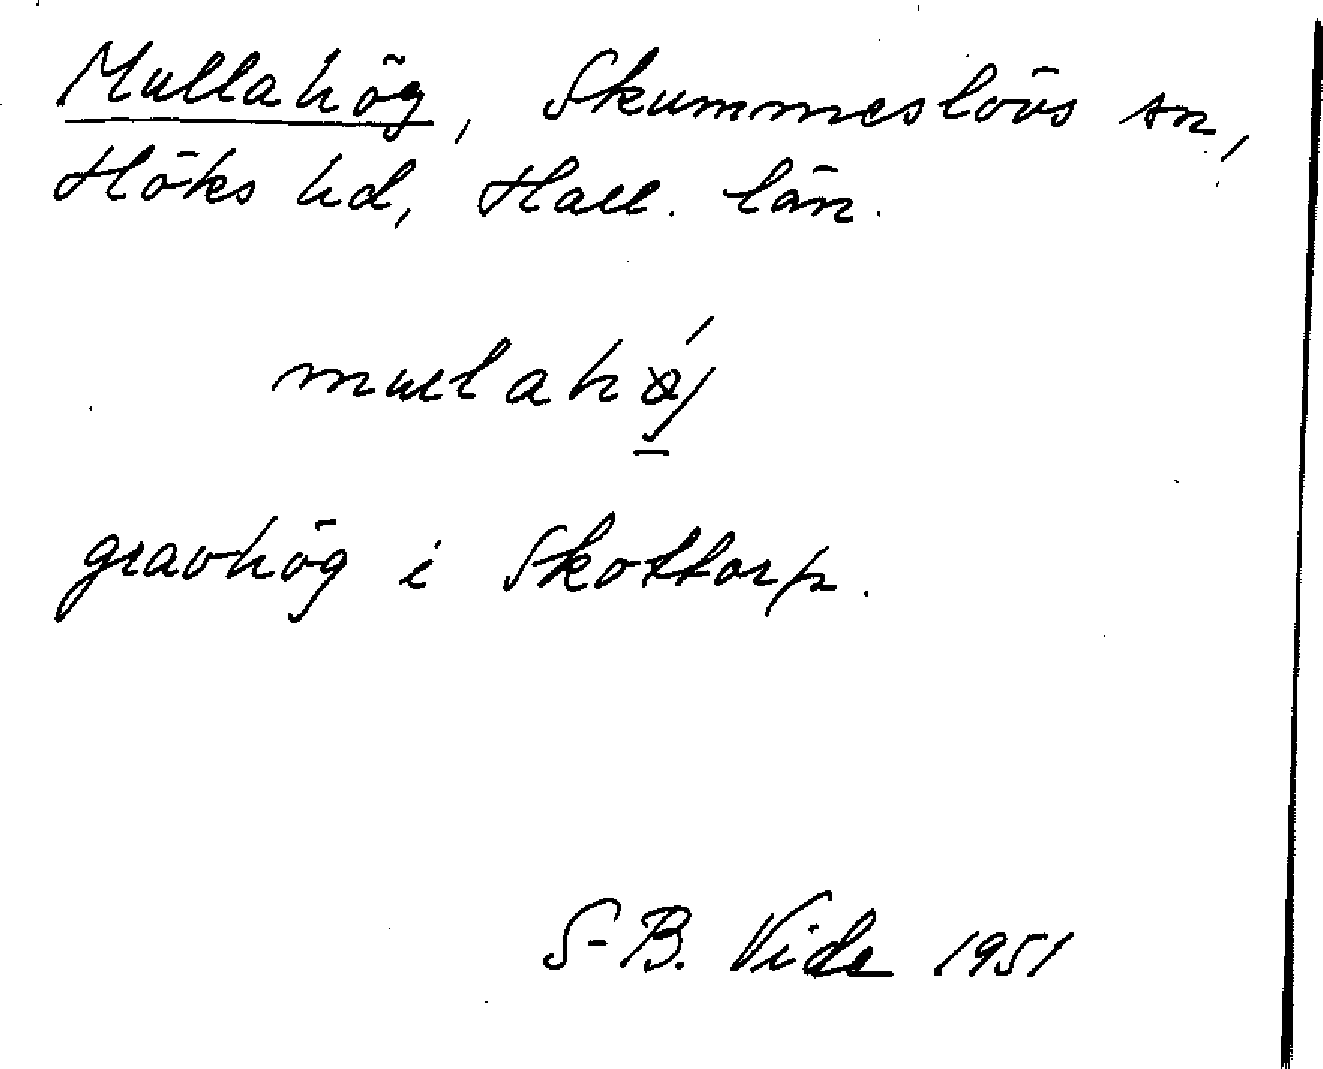 Mullahög, Skummeslövs sn,
Höks hd, Hall. län.
mullahǿj
gravhög i Skottorp.
S-B. Vide 1951